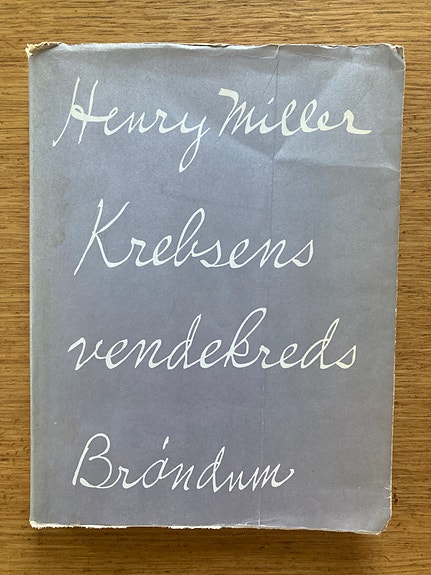 Henry Miller
Krebsens
vendekreds
Brøndum